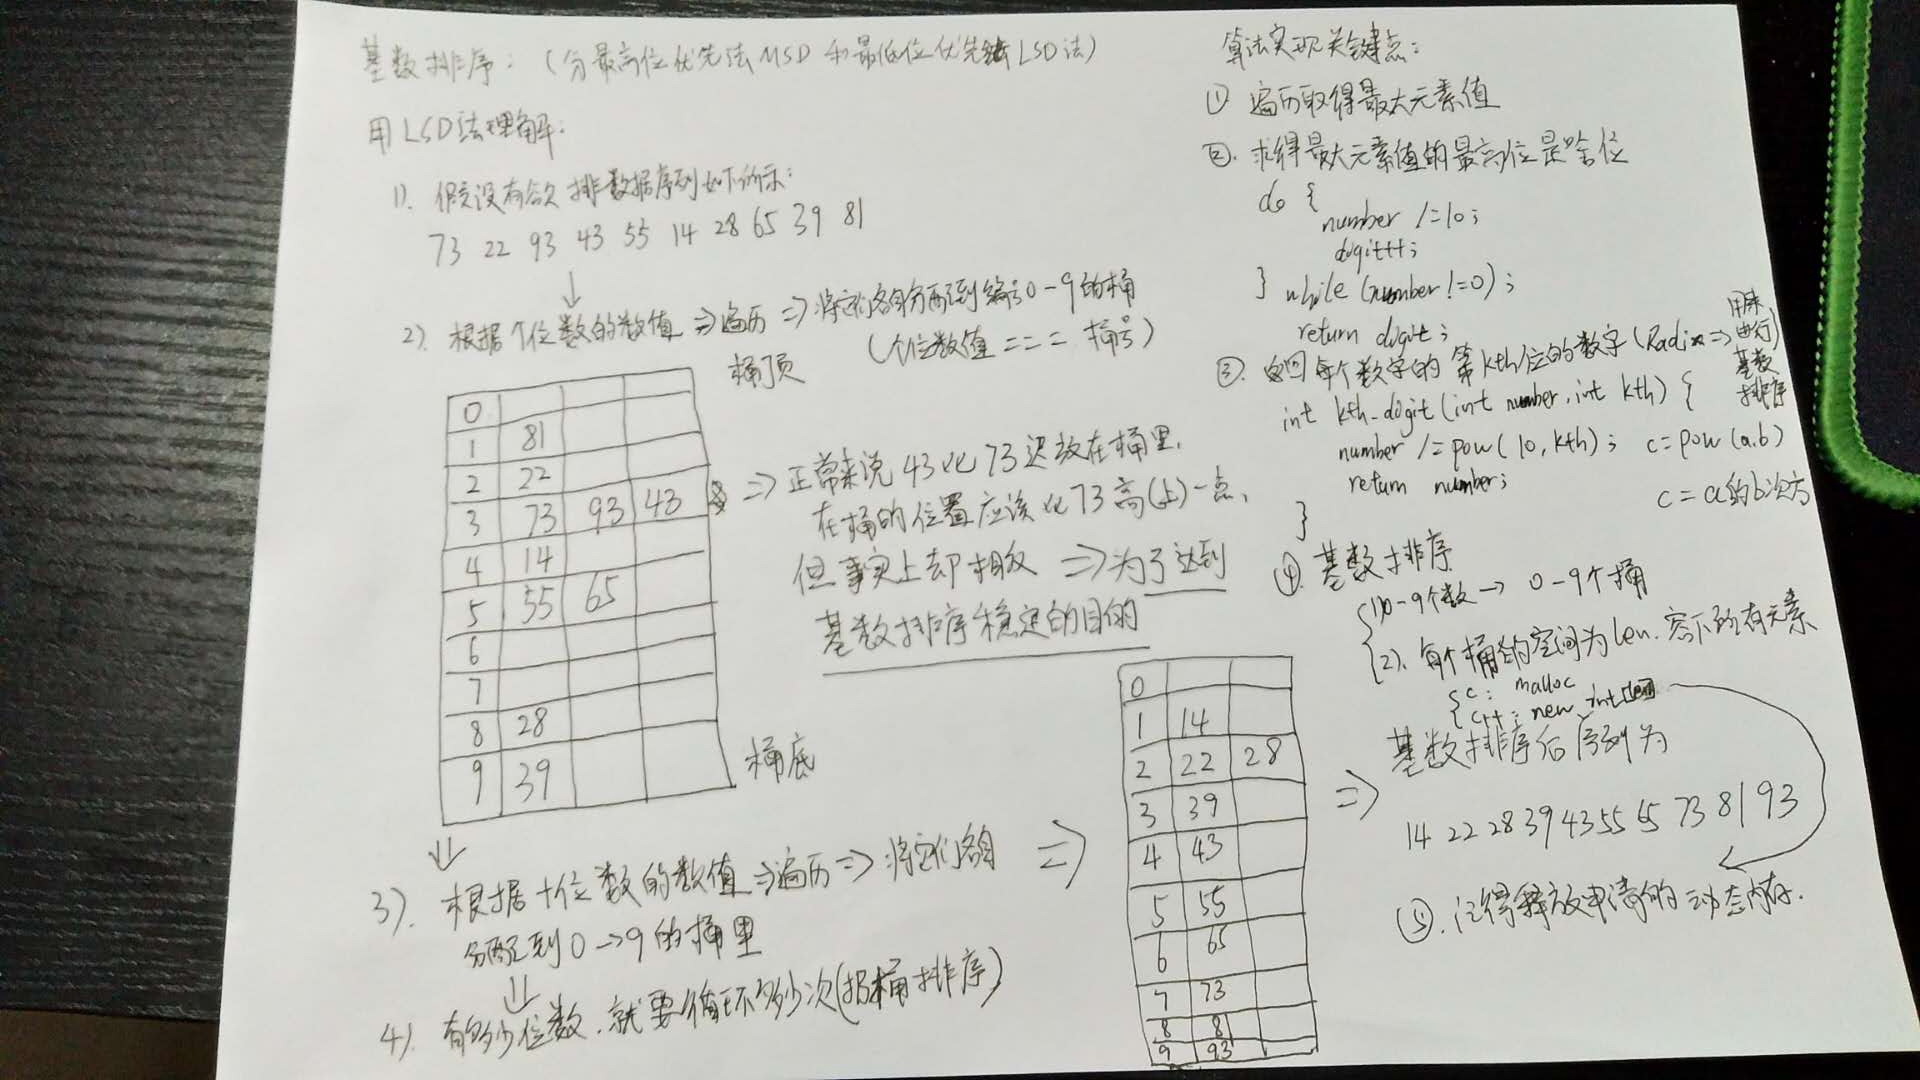 基数排序：（分最高位优先法MSD和最低位优先法LSD法）
用LSD法理解：
1). 假设有欲排数据序列如下所示：
73 22 93 43 55 14 28 65 39 81
↓
2). 根据个位数的数值 => 遍历 => 将它们各自分配到编号0-9的桶
（个位数值 === 桶号）
桶顶
0
1 81
2 22
3 73 93 43
4 14
5 55 65
6
7
8 28
9 39
桶底
=> 正常来说43比73迟放在桶里,
在桶的位置应该比73高(上)一点,
但事实上却相反 => 为了达到
基数排序稳定的目的
3). 根据十位数的数值 => 遍历 => 将它们各自
分配到0->9的桶里
=>
0
1 14
2 22 28
3 39
4 43
5 55
6 65
7 73
8 81
9 93
4). 有多少位数,就要循环多少次(桶排序)
算法实现关键点：
① 遍历取得最大元素值
②. 求得最大元素值的最高位是啥位
do {
number /=10;
digit++;
} while (number !=0);
return digit;
③. 返回每个数字的第kth位的数字(Radix => 用来进行基数排序)
int kth_digit(int number, int kth) {
number /= pow(10, kth); c=pow(a.b)
return number; c=a的b次方
}
④. 基数排序
1) 0-9个数 -> 0-9个桶
2). 每个桶的空间为len.容下所有元素
c: malloc
c++: new int
基数排序后序列为
=> 14 22 28 39 43 55 65 73 81 93
⑤. 记得释放申请的动态内存.